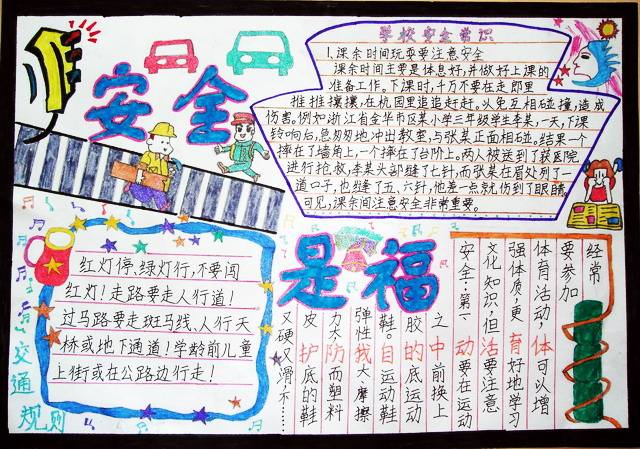 安全
是福
学校安全常识
1.课余时间玩耍要注意安全
课余时间主要是休息好,并做好上课的
准备工作。下课时,千万不要在走即里
推推攘攘,在校园里追追赶赶。以免互相碰撞,造成
伤害。例如浙江省金华市区某小学三年级学生李某,一天,下课
铃响后,急匆匆地冲出教室,与张某正面相碰。结果一个
摔在了墙角上,一个摔在了台阶上。两人被送到了医院
进行抢救,李某头部缝了七针,而张某在眉处列了一
道口子,也缝了五、六针,他差一点就伤到了眼睛
可见,课余间注意安全非常重要。
红灯停、绿灯行,不要闯
红灯!走路要走人行道!
过马路要走斑马线、人行天
桥或地下通道!学龄前儿童
上街或在公路边行走!
交通规则
经常
要参加
体育活动,体可以增
强体质,更育好地学习
文化知识,但活要注意
安全:第一动要在运动
之中前换上
胶的底运动
鞋。自运动鞋
弹性我大、摩擦
力大防而塑料
皮护底的鞋
又硬又滑不……